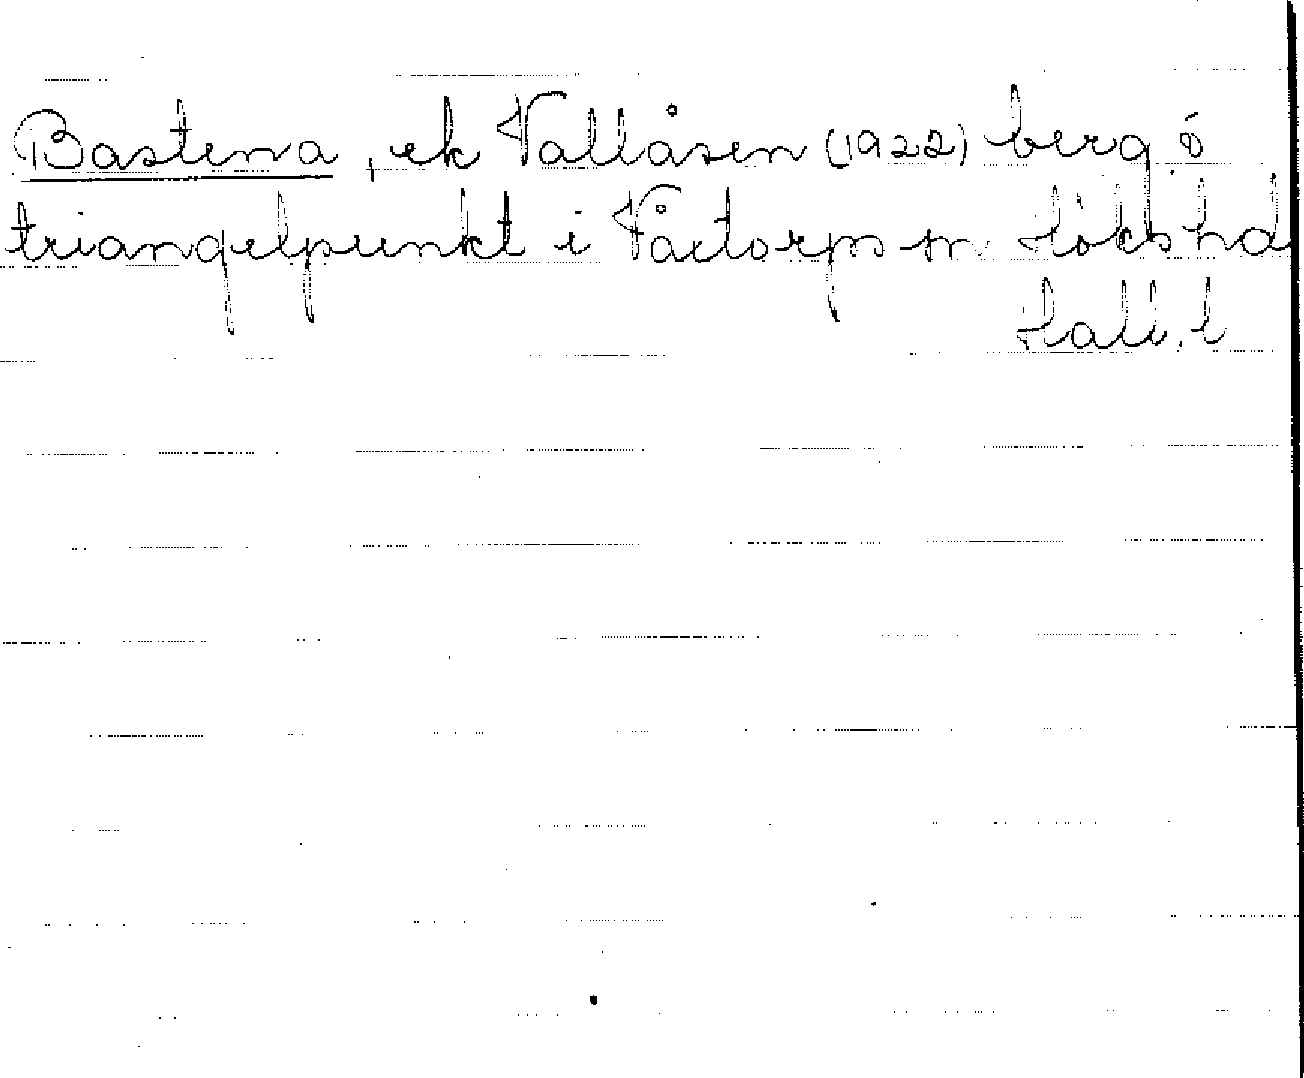 Bastena, ek Vallåsen (1922) berg ö
triangelpunkt i Våxtorps sn Höks hd
Hall. l